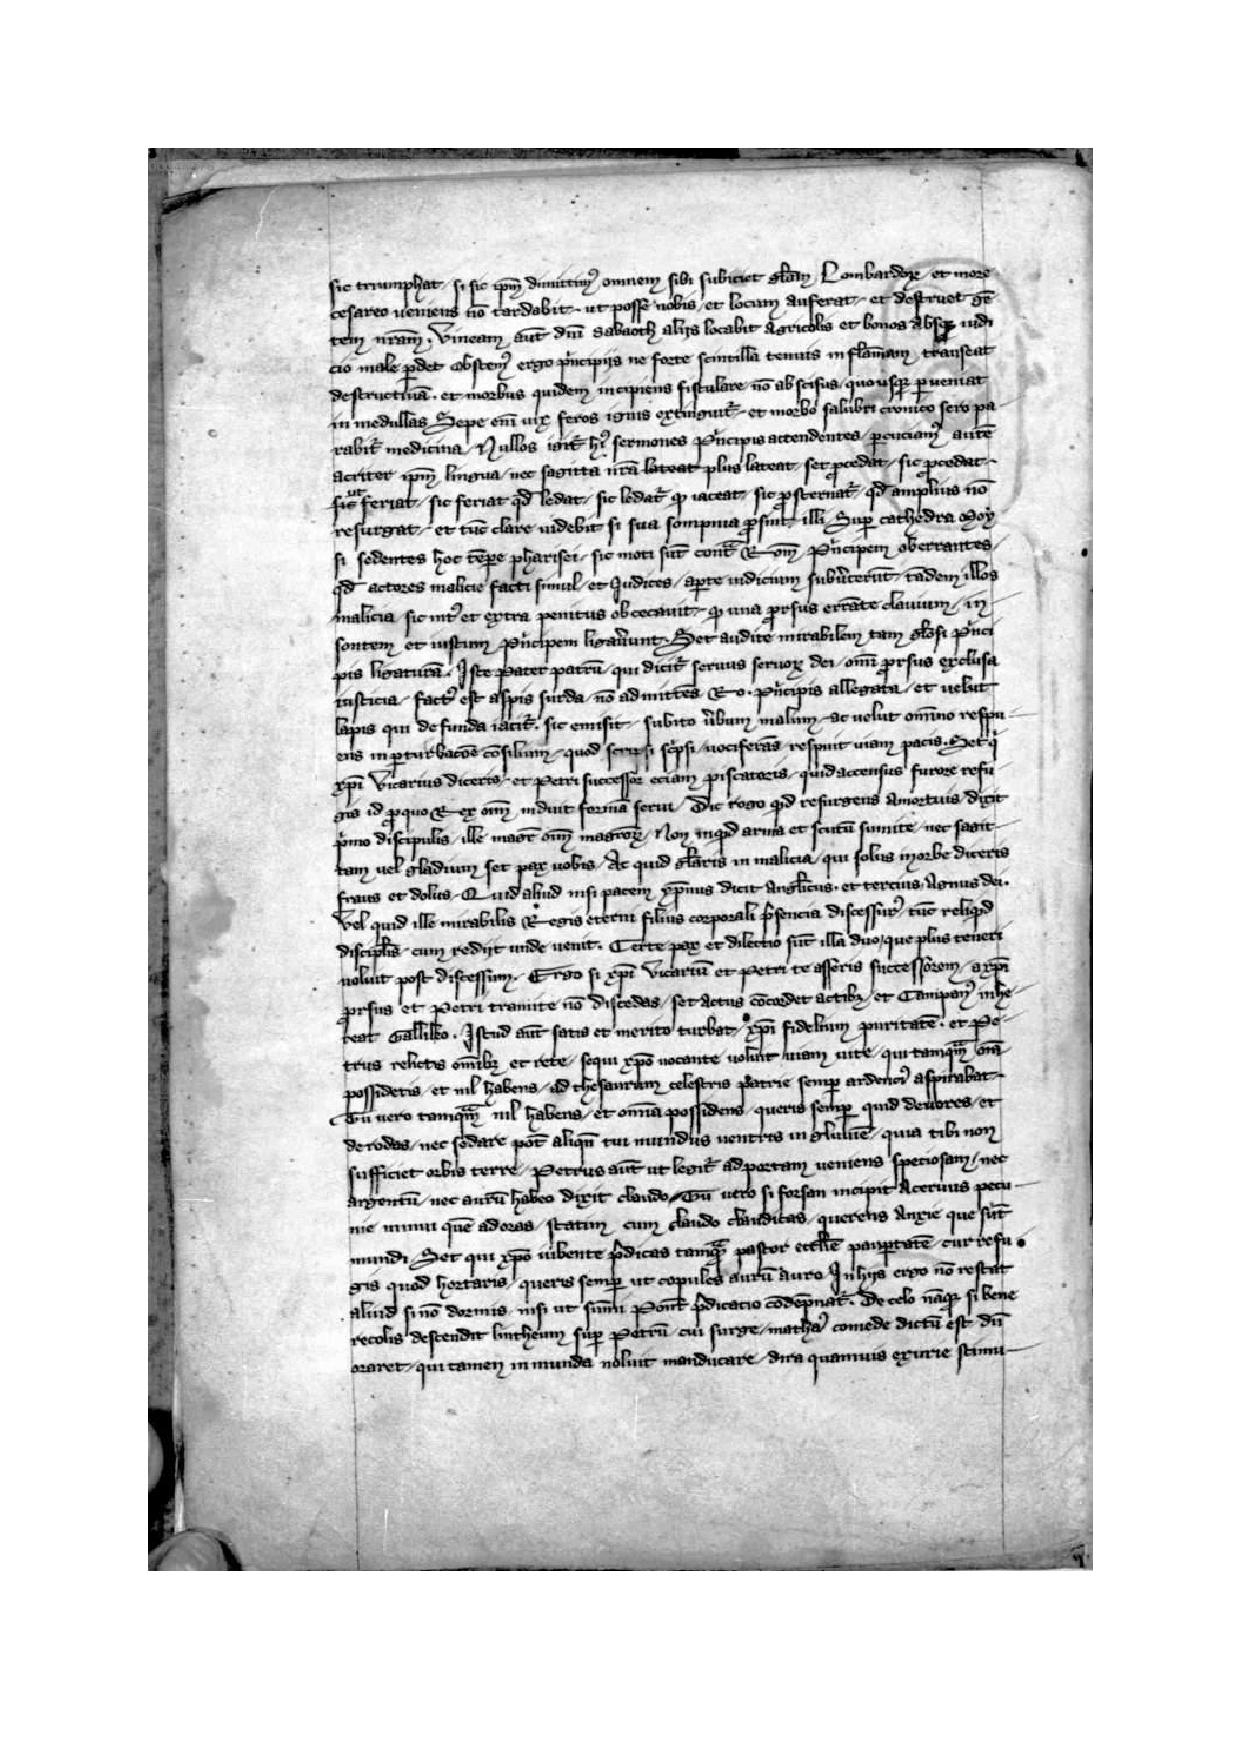 sic triumphat / si sic ip̄m dimittim᷒ omnem sibi subiciet gl̄iam Lombardoꝝ / et more
cesareo ueniens nō tardabit / ut posse nobis / et locum auferat / et destruet gē
tem nr̄am . Vineam aut̄ dn̄i sabaoth alijs locabit Agricolis et bonos absqꝫ iudi
cio male ꝑdet Obstem᷒ ergo pⁱncipijs ne forte scintilla tenuis in flāmam transeat
destructiuā . et morbus quidem incipiens fistulare / nō abscisus / quousqꝫ ꝑueniat
in medullas Sepe eni᷒ uix feros ignis extinguit᷑ / et morbo salubri cronico sero pa
rabit᷑ medicina / Nullos igit᷑ hi᷒ sermones Pⁱncipis attendentes / ꝑcuciam᷒ autē
acriter ip̄m lingua / nec sagitta nr̄a lateat plus lateat / set ꝓcedat / sic ꝓcedat
ut feriat / sic feriat qd̄ ledat / sic ledat᷑ qꝫ iaceat / sic ꝓsternat᷑ / qd̄ amplius nō
resurgat / et tūc clare uidebit si sua sompnia ꝓsint illi Suꝑ cathedra Moy
si sedentes hoc tēpe pharisei / sic moti sūt contᵃ Rom̄ Pⁱncipem oberrantes /
qd̄ actores malicie facti simul / et Judices / aꝑte iudicium subu᷒terūt / tādem illos
malicia / sic int᷒ et extra penitus obcecauit / qꝫ una ꝓrsus errāte clauium / in
sontem et iustum Pⁱncipem ligau᷒unt . Set audite mirabilem tam gl̄osi Pⁱnci
pis ligaturā . Iste pater patrū / qui dicit᷑ seruus seruoꝝ dei / omī ꝓrsus exclusa
iusticia / fact᷒ est aspis surda / nō admittēs Ro . Pⁱncipis allegata / et uelut
lapis qui de funda iacit᷑ . sic emisit / subito u᷒bum malum / ac uelut omīno respu
ens inꝑturbacōe cōsilium / quod scripsi sc̄psi / uociferās / respuit uiam pacis . Set qⁱ
xp̄i Vicarius diceris / et Petri successor eciam piscatoris / quid accensus furore refu
gis id ꝓ quo Rex om̄ induit formā serui / Dic rogo qⁱd resurgens Amortuis / dixit
pⁱmo discipulis / ille magr̄ om̄ magroꝝ / Non inqⁱd arma et scutū sumite / nec sagit
tam uel gladium set pax uobis / At quid gl̄aris in malicia / qui solus in orbe diceris
fraus et dolus / Quid aliud nisi pacem xp̄ianus dicit Angl̄icus . et tercius Agnus dei .
Vel quid ille mirabilis Regis eterni filius corporali p̄sencia discessur᷒ / tūc reliqⁱd
discipl̄is / cum redijt unde uenit . Certe pax et dilectio sūt illa duo / que plus teneri
uoluit post discessum / Ergo si xp̄i Vicariū et Petri te asseris successorem / a xp̄i
ꝓrsus et Petri tramite nō discedas / set actus cōcordet actibꝫ / et
teat Gallileo . Istud aut̄ satis et merito turbat / xp̄i fidelium puritatē . et Pe
trus relictis omībꝫ et rete / sequi xp̄o uocante uoluit uiam uite / qui tamqᵃm om̄
possidens / et nil habens / ad thesaurum celestris patrie semꝑ ardenci᷒ aspirabat
Tu uero tamqᵃm nil habens / et omīa possidens / queris semꝑ quid deuores / et
derodas / nec sedare pot̄ aliqn̄ tui mundus uentris ingluuiē / quia tibi non
sufficiet orbis terre / Petrus aut̄ ut legit᷑ ad portam ueniens speciosam / nec
argentū / nec aurū habeo dixit claudo / Tu uero si forsan incipit Aceruus pecu
nie minui quē adoras / statim cum claudo claudicas / querens Anxie que sūt
mundi / Set qui xp̄o iubente p̄dicas tamqᵃ pastor eccl̄ie pauꝑtatē / cur refu
gis quod hortaris / queris semꝑ ut copules aurū auro In hijs ergo nō restat
aliud si nō dormis / nisi ut sūmi Pont̄ p̄dicatio cōdēpnat᷑ . De celo nāqꝫ si bene
recolis descendit lintheum suꝑ Petrū / cui surge / matha᷒ comede dictū est dū
oraret / qui tamen inmunda noluit manducare / dira quamuis exurie stimu